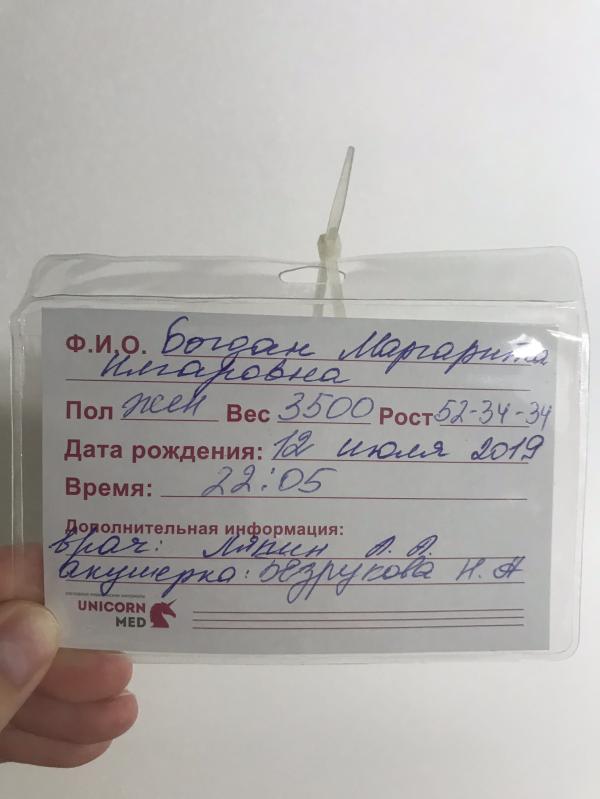 Ф.И.О. Богдан Маргарита
Илгаровна
Пол жен Вес 3500 Рост 52-34-34
Дата рождения: 12 июля 2019
Время: 22:05
Дополнительная информация:
Врач: Лякин А. А.
акушерка: Безрукова Н. А
UNICORN
MED